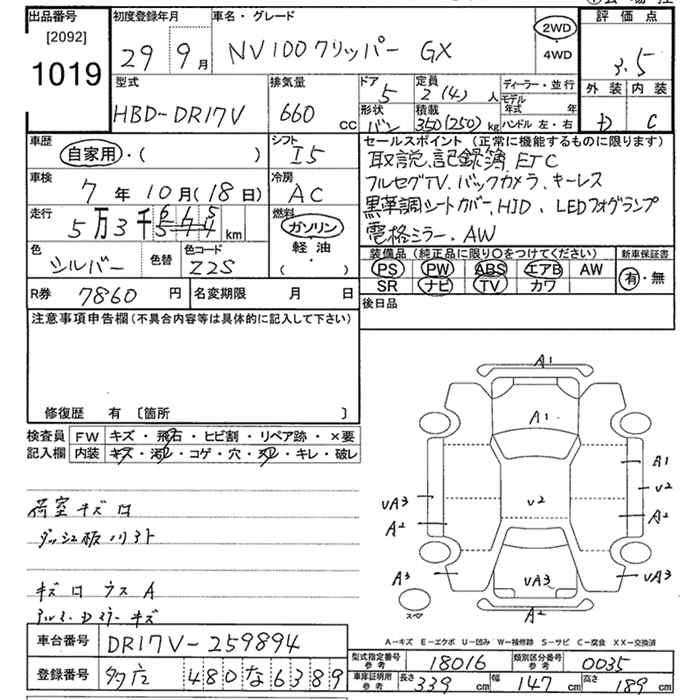 出品番号 初度登録年月 車名・グレード 評価点
[2092]
1019
29年9月 NV100クリッパー GX 2WD・4WD 3.5
型式 排気量 ドア 定員 ディーラー・並行 外装 内装
HBD-DR17V 660cc 5 2(4)人 モデル年式 年 C
形状 積載
バン 350(250)kg ハンドル 左・右
車歴 シフト セールスポイント (正常に機能するものに限ります)
自家用・( ) I5 取説、記録簿、ETC
車検 冷房 フルセグTV、バックカメラ、キーレス
7年10月(18日) AC 黒革調シートカバー、HID、LEDフォグランプ
走行 燃料 電格ミラー、AW
5万3千 km ガソリン・軽油・( )
色 色替 色コード 装備品 (純正品に限り○をつけてください) 新車保証書
シルバー Z2S PS PW ABS エアB AW 有・無
SR ナビ TV カワ
R券 7860円 名変期限 月 日 後日品
注意事項申告欄 (不具合内容等は具体的に記入して下さい)
修復歴 有 [箇所 ]
検査員記入欄 FW キズ・飛石・ヒビ割・リペア跡・×要
内装 キズ・汚れ・コゲ・穴・スレ・キレ・破レ
荷室キズ
キズ
A1
A1
A1
vA3 v2 v2
A2 A2
A3 vA3 vA3
スペア A2
A-キズ E-エクボ U-凹み W-補修跡 S-サビ C-腐食 XX-交換済
車台番号 DR17V-259894
登録番号 480な6389
型式指定番号 参考 18016 類別区分番号 参考 0035
車庫証明用 参考 長さ 339cm 幅 147cm 高さ 189cm